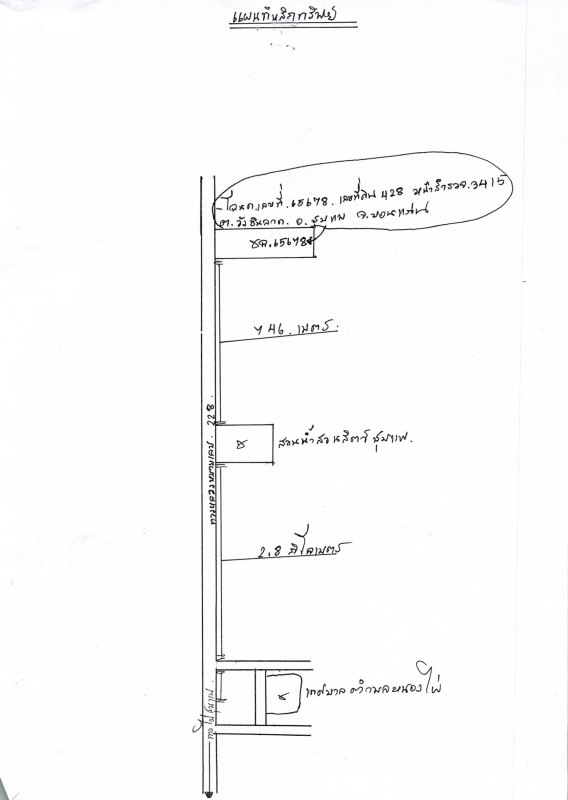 แผนที่หลักทรัพย์
โฉนด.เลขที่.65678. เลขที่ดิน 428 หน้าสำรวจ.3415
ต.วังหินลาด. อ.ชุมแพ จ.ขอนแก่น
ฉด.65678
746. เมตร.
ทางหลวงหมายเลข. 228.
สวนน้ำสวนสัตว์ชุมแพ.
2.8 กิโลเมตร
เทศบาลตำบลหนองไผ่
ไปชุมแพ.